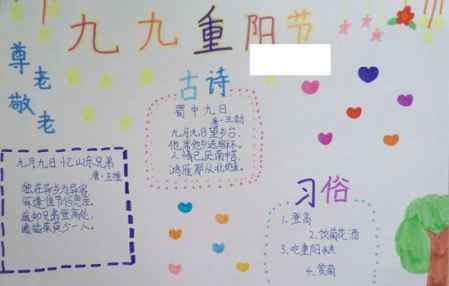 九九重阳节
尊老
敬老
古诗
蜀中九日
唐·王勃
九月九日望乡台,
他席他乡送客杯。
人情已厌南中苦,
鸿雁那从北地来。
九月九日忆山东兄弟
唐·王维
独在异乡为异客
每逢佳节倍思亲
遥知兄弟登高处
遍插茱萸少一人。
习俗
1.登高
2.饮菊花酒
3.吃重阳糕
4.赏菊